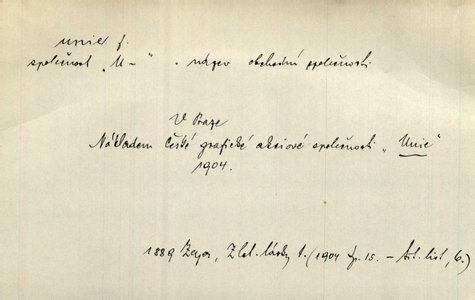 unie f.
společnost „U–“ . název obchodní společnosti
V Praze
Nákladem České grafické akciové společnosti „Unie“
1904.
1889 Zeyer, Zlat. 1. (1904 15. – tit. list, 6.)